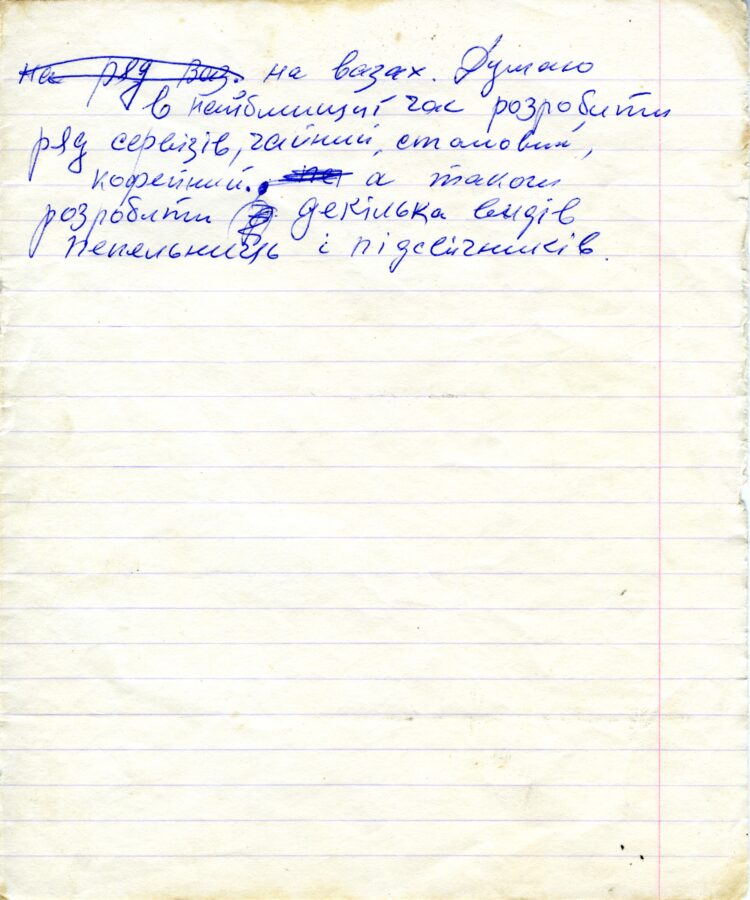 на ряд ваз. на вазах. Думаю
в найблищий час розробити
ряд сервізів, чайний, столовий,
кофейний. а також
розробити декілька видів
пепельниць і підсвічників.